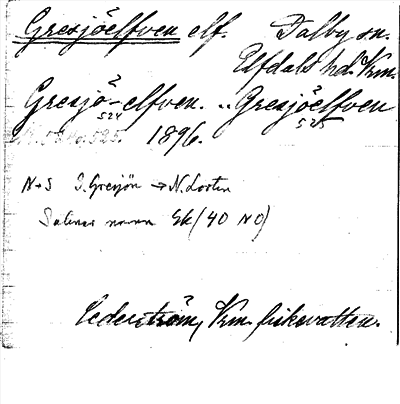 Gresjöelfven elf. Dalby sn.
Elfdals hd. Vrm.
Gresjö-elfven. „ Gresjöelfven
524 525
s. 524 o. 525. 1896.
N→S S. Gresjön → N. Lorten
Saknar namn Gk (40 NO)
Cederström, Vrm. fiskevatten.